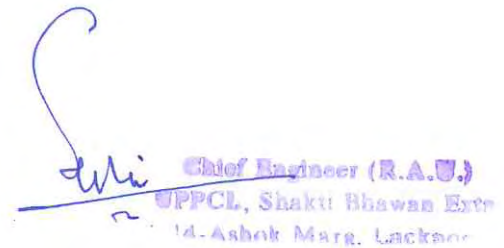 Chief Engineer (R.A.U.)
UPPCL, Shakti Bhawan Extn
14-Ashok Marg, Lucknow